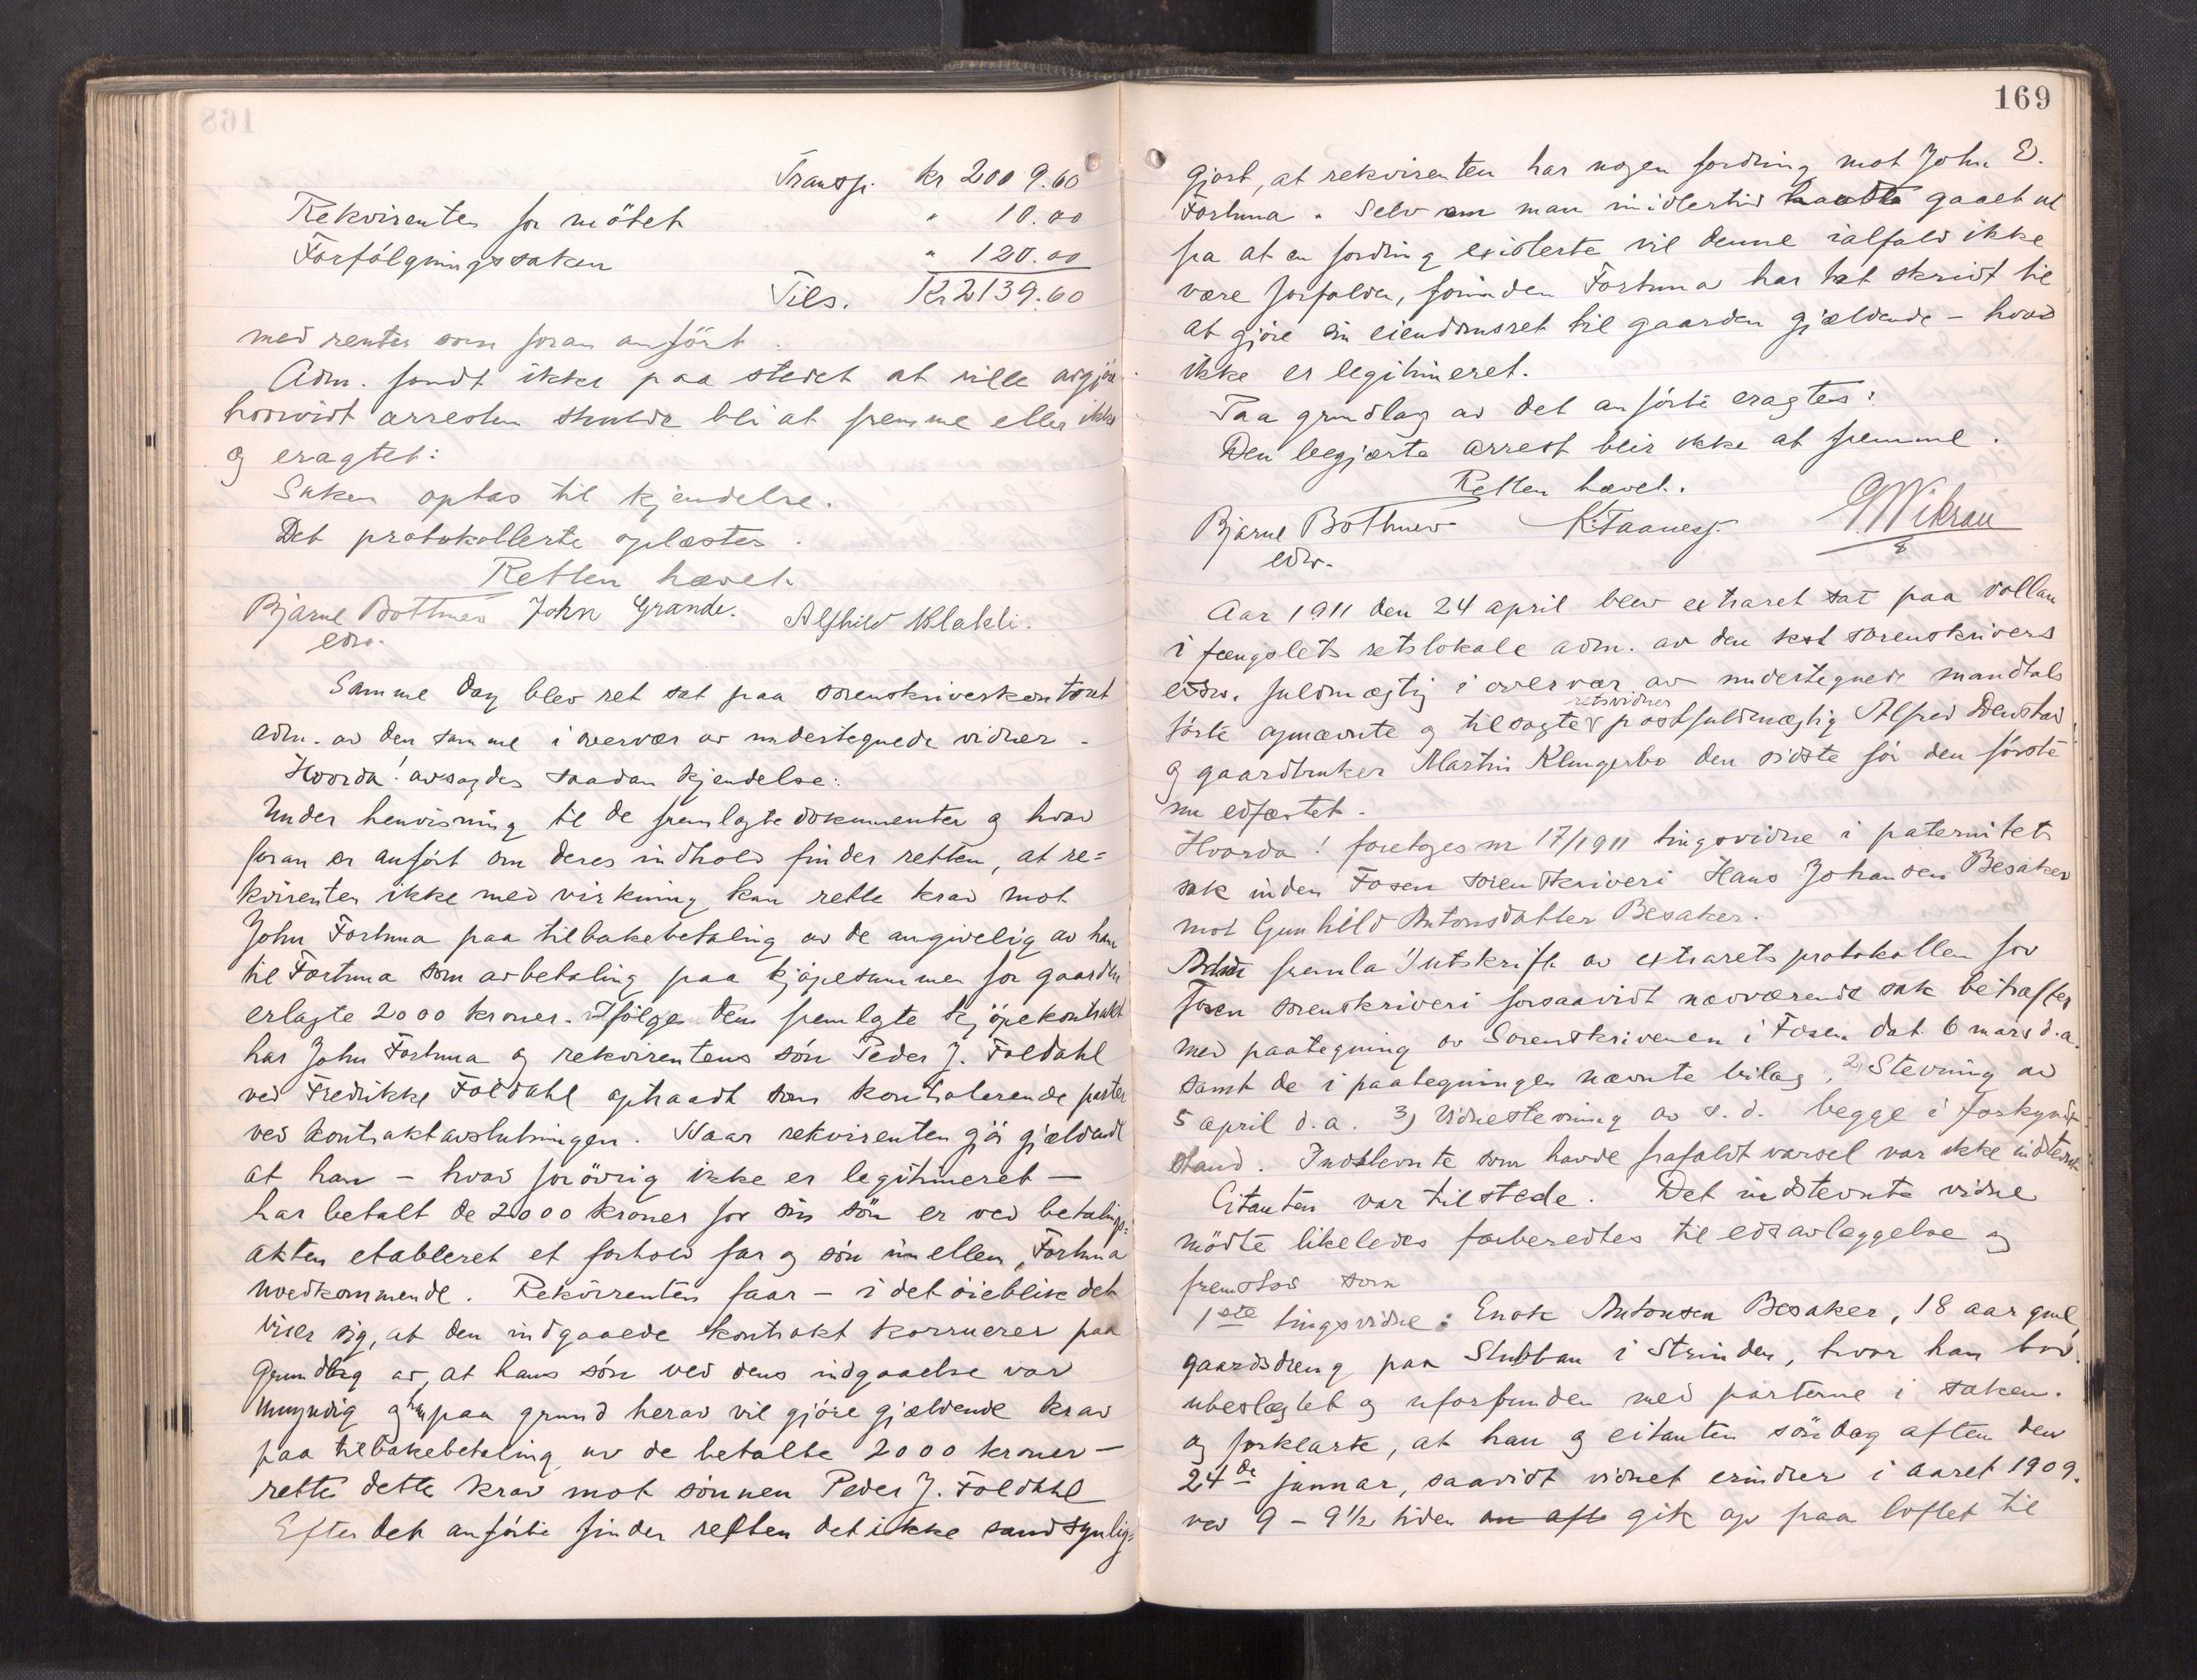 Transp. kr 2009.60
Rekvirenten for mötet " 10.00
Forfölgningssaken " 120.00
Tils. Kr 2139.60
med renter som foran anfört.
Adm. fandt ikke paa stedet at ville avgjöre
hvorvidt arresten skulde bli at fremme eller ikke
og eragtet:
Saken optas til kjendelse.
Det protokollerte oplæstes.
Retten hævet.
Bjarne Bothner John Grande. Alfhild Klakli.
edsv.
Samme dag blev ret sat paa sorenskriverkontoret
adm. av den samme i overvær av undertegnede vidner.
Hvorda! avsagdes saadan kjendelse:
Under henvisning til de fremlagte dokumenter og hvad
foran er anfört om deres indhold finder retten, at re=
kvirenten ikke med virkning kan rette krav mot
John Fortuna paa tilbakebetaling av de angivelig av ham
til Fortuna som avbetaling paa kjöpesummen for gaarden
erlagte 2000 kroner. Ifölge den fremlagte kjöpekontrakt
har John Fortuna og rekvirentens sön Peder J. Foldahl
ved Fredrikke Foldahl optraadt som kontraherende parter
ved kontraktavslutningen. Naar rekvirenten gjör gjældende
at han – hvad forövrig ikke er legitimeret –
har betalt de 2000 kroner for sin sön er ved betalings=
akten etableret et forhold far og sön imellem, Fortuna
uvedkommende. Rekvirenten faar – i det öieblik det
viser sig, at den indgaaede kontrakt korruerer paa
Grundlag av, at hans sön ved dens indgaaelse var
umyndig og han paa grund herav vil gjöre gjældende krav
paa tilbakebetaling av de betalte 2000 kroner –
rette dette krav mot sönnen Peder J. Foldahl
Efter det anförte finder retten det ikke sandsynlig=
169
gjort, at rekvirenten har nogen fordring mot John E.
Fortuna. Selv om man imidlertid havde gaaet ut
fra at en fordring existerte vil denne ialfald ikke
være forfalden, forinden Fortuna har tat skridt til
at gjöre sin eiendomsret til gaarden gjældende – hvad
ikke er legitimeret.
Paa grundlag av det anförte eragtes:
Den begjærte arrest blir ikke at fremme.
Retten hævet.
Bjarne Bothner K. Taanesj.
edsv.
Aar 1911 den 24 april blev extraret sat paa Vollan
i fængslets retslokale adm. av den kst sorenskrivers
edsv. fuldmægtig i overvær av undertegnede mandtals
förte opnævnte og tilsagte retsvidner postfuldmægtig Alfred Denstad
og gaardbruker Martin Klungerbo den sidste för den förste
nu edfæstet.
Hvorda! foretoges nr 17/1911 tingsvidne i paternitets
sak inden Fosen sorenskriveri Hans Johansen Besaker
mot Gunhild Antonsdatter Besaker.
Adm fremla 1) utskrift av extraretsprotokollen for
Fosen sorenskriveri forsaavidt nærværende sak betræffer
med paategning av Sorenskriveren i Fosen dat. 6 mars d.a.
samt de i paategningen nævnte bilag, 2) Stevning av
5 april d.a. 3) Vidnestevning av s.d. begge i forkyndt
stand. Indstevnte som havde frafaldt varsel var ikke indstevnt
Citanten var tilstede. Det indstevnte vidne
mödte likeledes forberedtes til edsavlæggelse og
fremstod som
1ste tingsvidne: Enok Antonsen Besaker, 18 aar gml,
gaardsdreng paa Stubban i Strinden, hvor han bor.
ubeslægtet og uforbunden med parterne i saken.
og forklarte, at han og citanten söndag aften den
24de januar, saavidt vidnet erindrer i aaret 1909.
ved 9 – 9½ tiden om aft gik op paa loftet til